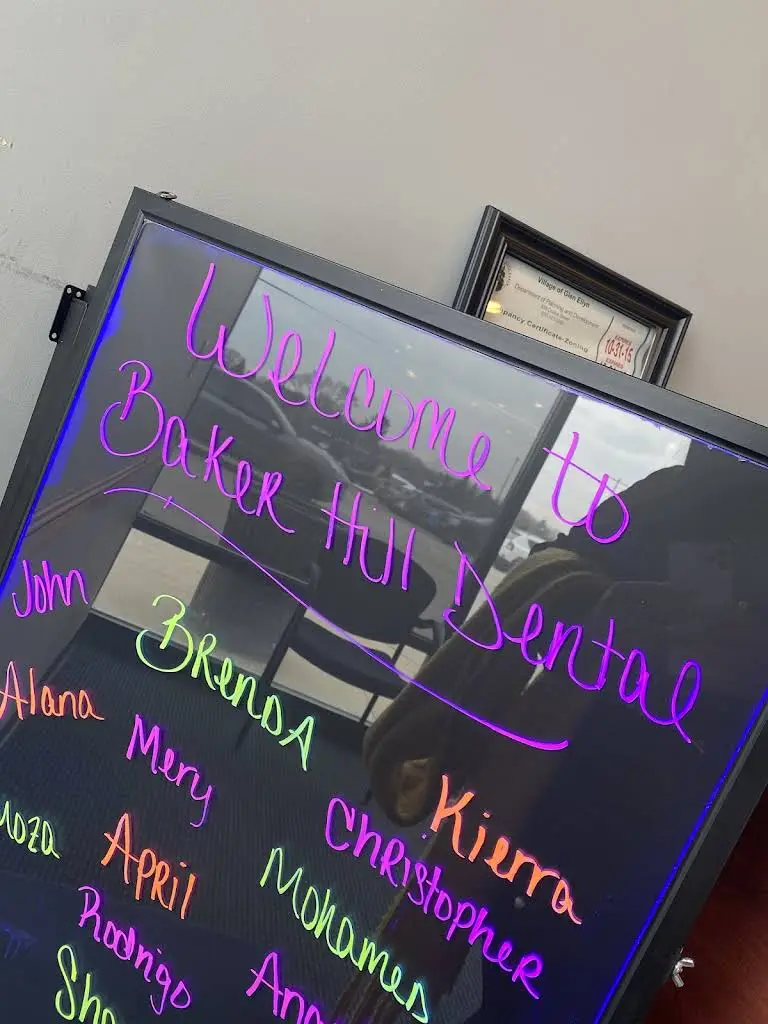 Village of Glen Ellyn
Department of Planning and Development
pancy Certificate-Zoning
EXPIRES
10-31-15
Welcome to
Baker Hill Dental
John
BRENDA
Alana
Mery
Kierra
Christopher
April
Mohamed
Rodrigo